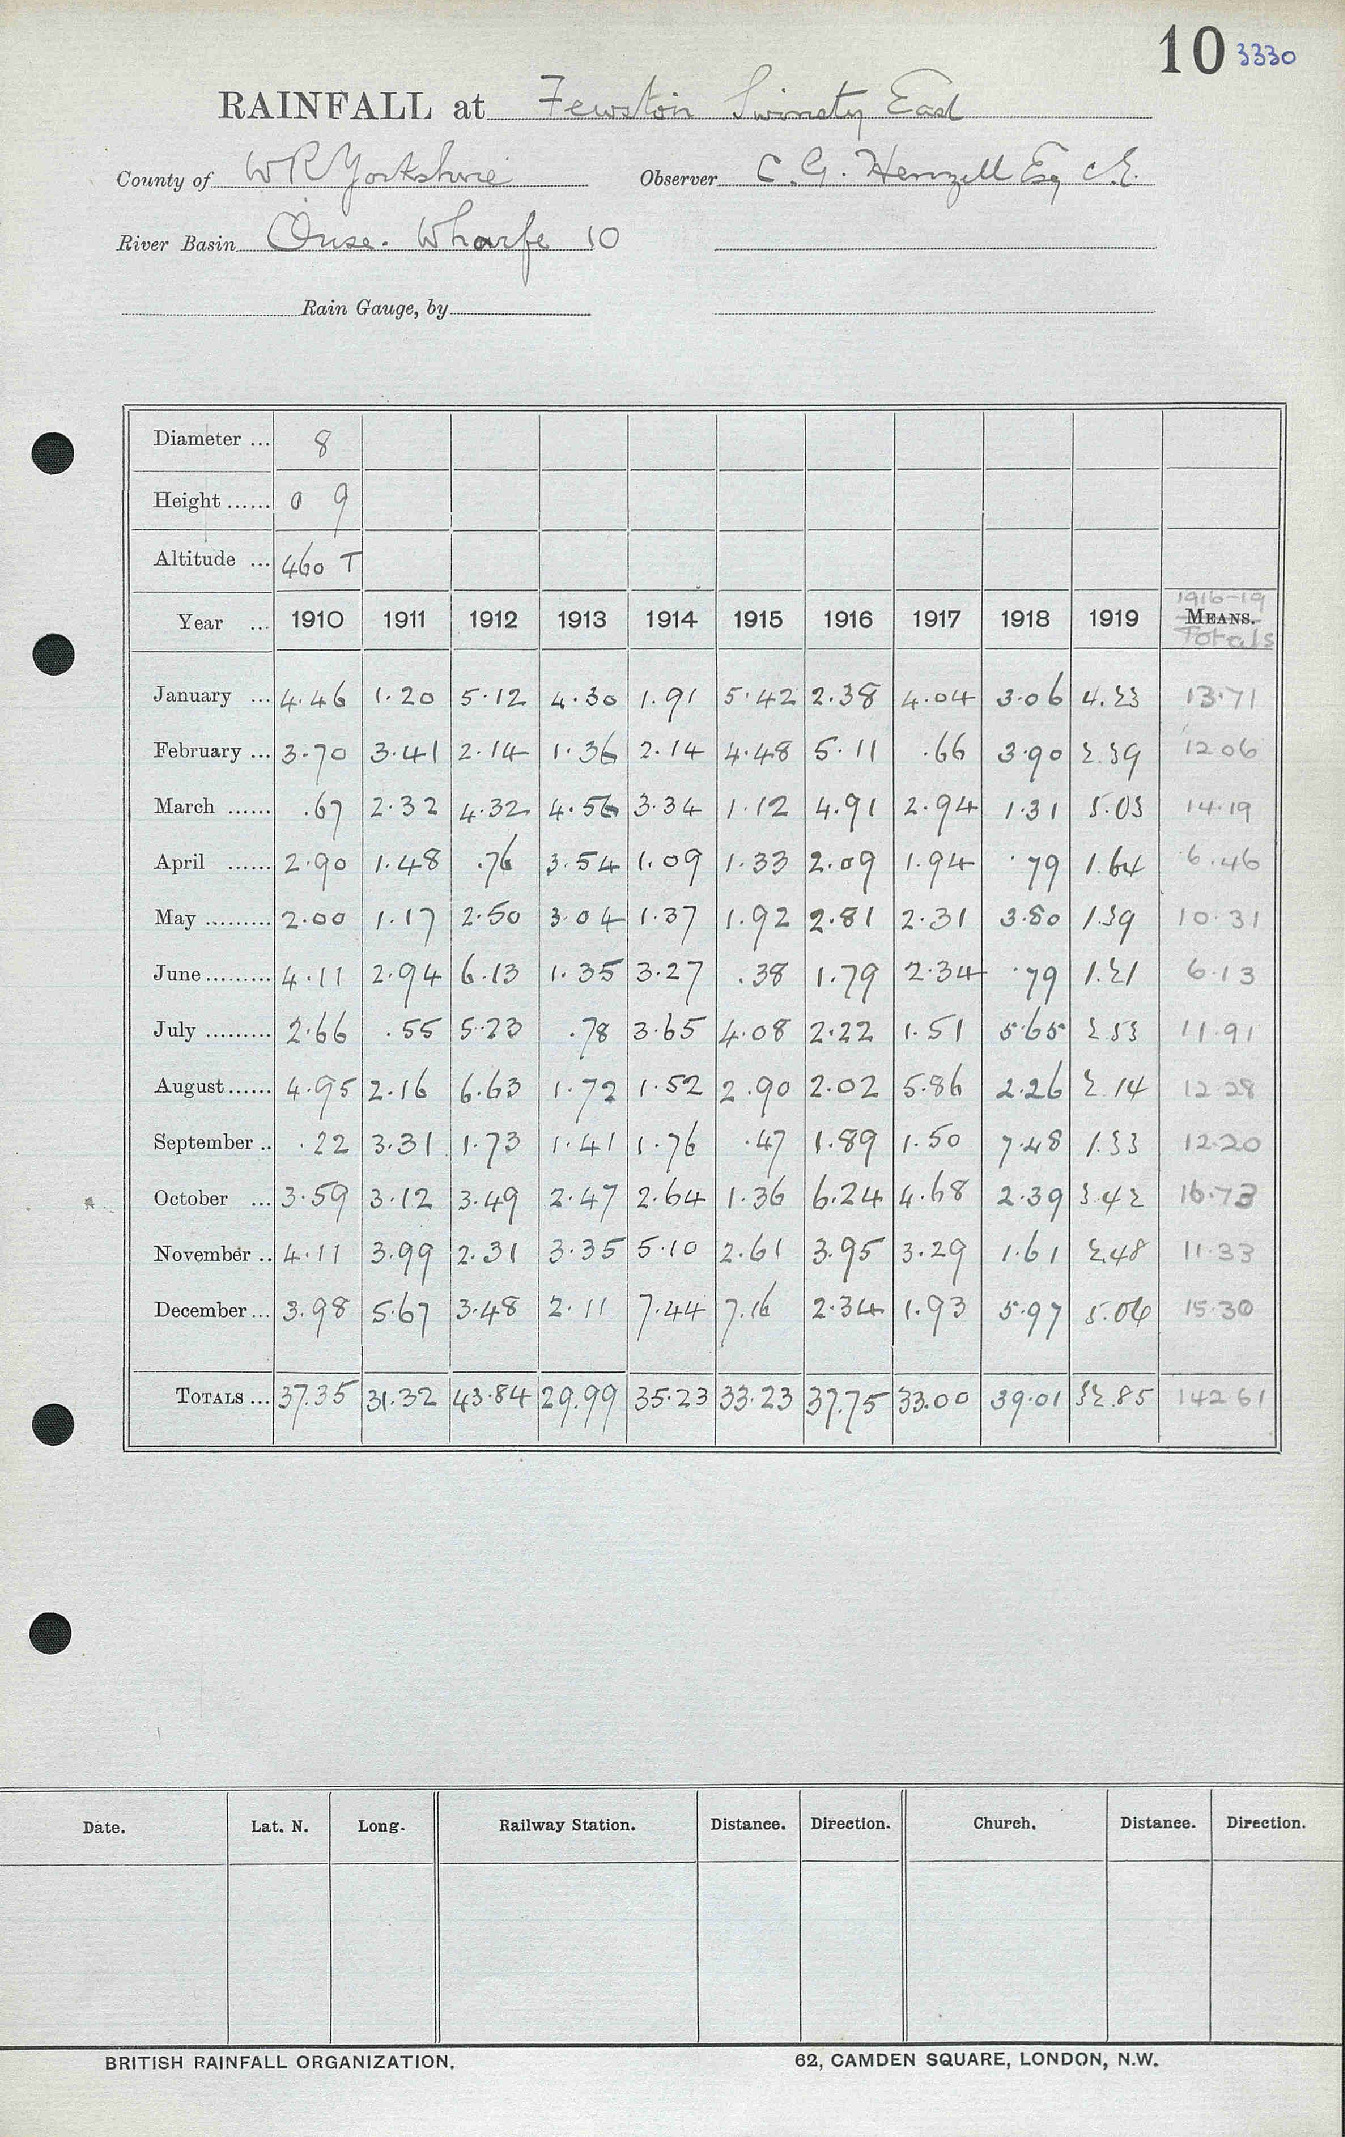 10 3330
RAINFALL at Fewston Swinsty East
County of W R Yorkshire Observer C. G. Henzell Esq C.E.
River Basin Ouse. Wharfe 10
Rain Gauge, by
Diameter ... 8
Height ...... 0 9
Altitude ... 460 T
1916-19
Year ... 1910 1911 1912 1913 1914 1915 1916 1917 1918 1919 MEANS.
Totals
January ... 4.46 1.20 5.12 4.30 1.91 5.42 2.38 4.04 3.06 4.23 13.71
February ... 3.70 3.41 2.14 1.36 2.14 4.48 5.11 .66 3.90 2.39 12.06
March ...... .67 2.32 4.32 4.56 3.34 1.12 4.91 2.94 1.31 5.03 14.19
April ...... 2.90 1.48 .76 3.54 1.09 1.33 2.09 1.94 .79 1.64 6.46
May ......... 2.00 1.17 2.50 3.04 1.37 1.92 2.81 2.31 3.80 1.39 10.31
June ......... 4.11 2.94 6.13 1.35 3.27 .38 1.79 2.34 .79 1.21 6.13
July ......... 2.66 .55 5.23 .78 3.65 4.08 2.22 1.51 5.65 2.53 11.91
August ...... 4.95 2.16 6.63 1.72 1.52 2.90 2.02 5.86 2.26 2.14 12.28
September .. .22 3.31 1.73 1.41 1.76 .47 1.89 1.50 7.48 1.33 12.20
October ... 3.59 3.12 3.49 2.47 2.64 1.36 6.24 4.68 2.39 3.42 16.73
November .. 4.11 3.99 2.31 3.35 5.10 2.61 3.95 3.29 1.61 2.48 11.33
December ... 3.98 5.67 3.48 2.11 7.44 7.16 2.34 1.93 5.97 5.06 15.30
TOTALS ... 37.35 31.32 43.84 29.99 35.23 33.23 37.75 33.00 39.01 32.85 142.61
Date. Lat. N. Long. Railway Station. Distance. Direction. Church. Distance. Direction.
BRITISH RAINFALL ORGANIZATION. 62, CAMDEN SQUARE, LONDON, N.W.